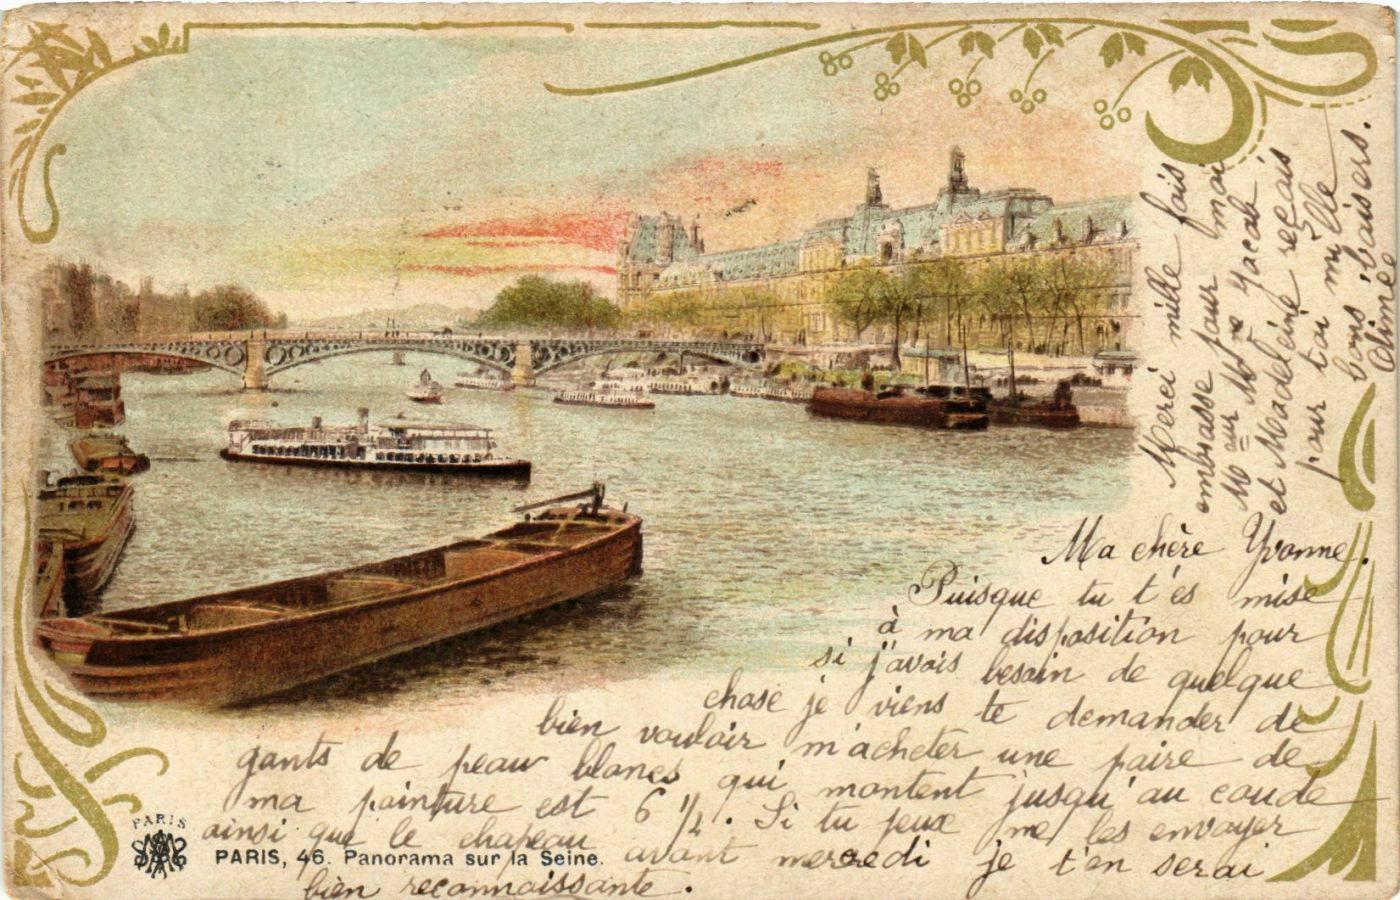 Ma chère Yvonne.
Puisque tu t'es mise
à ma disposition pour
si j'avais besoin de quelque
chose je viens te demander de
bien vouloir m'acheter une paire de
gants de peau blancs qui montent jusqu'au coude
ma pointure est 6 1/4. Si tu peux me les envoyer
ainsi que le chapeau avant mercredi je t'en serai
bien reconnaissante.
Merci mille fois
embrasse pour moi
Meur Mme
et Madeleine reçois
pour toi mille
bons baisers.
Aimée
PARIS
PARIS, 46. Panorama sur la Seine.